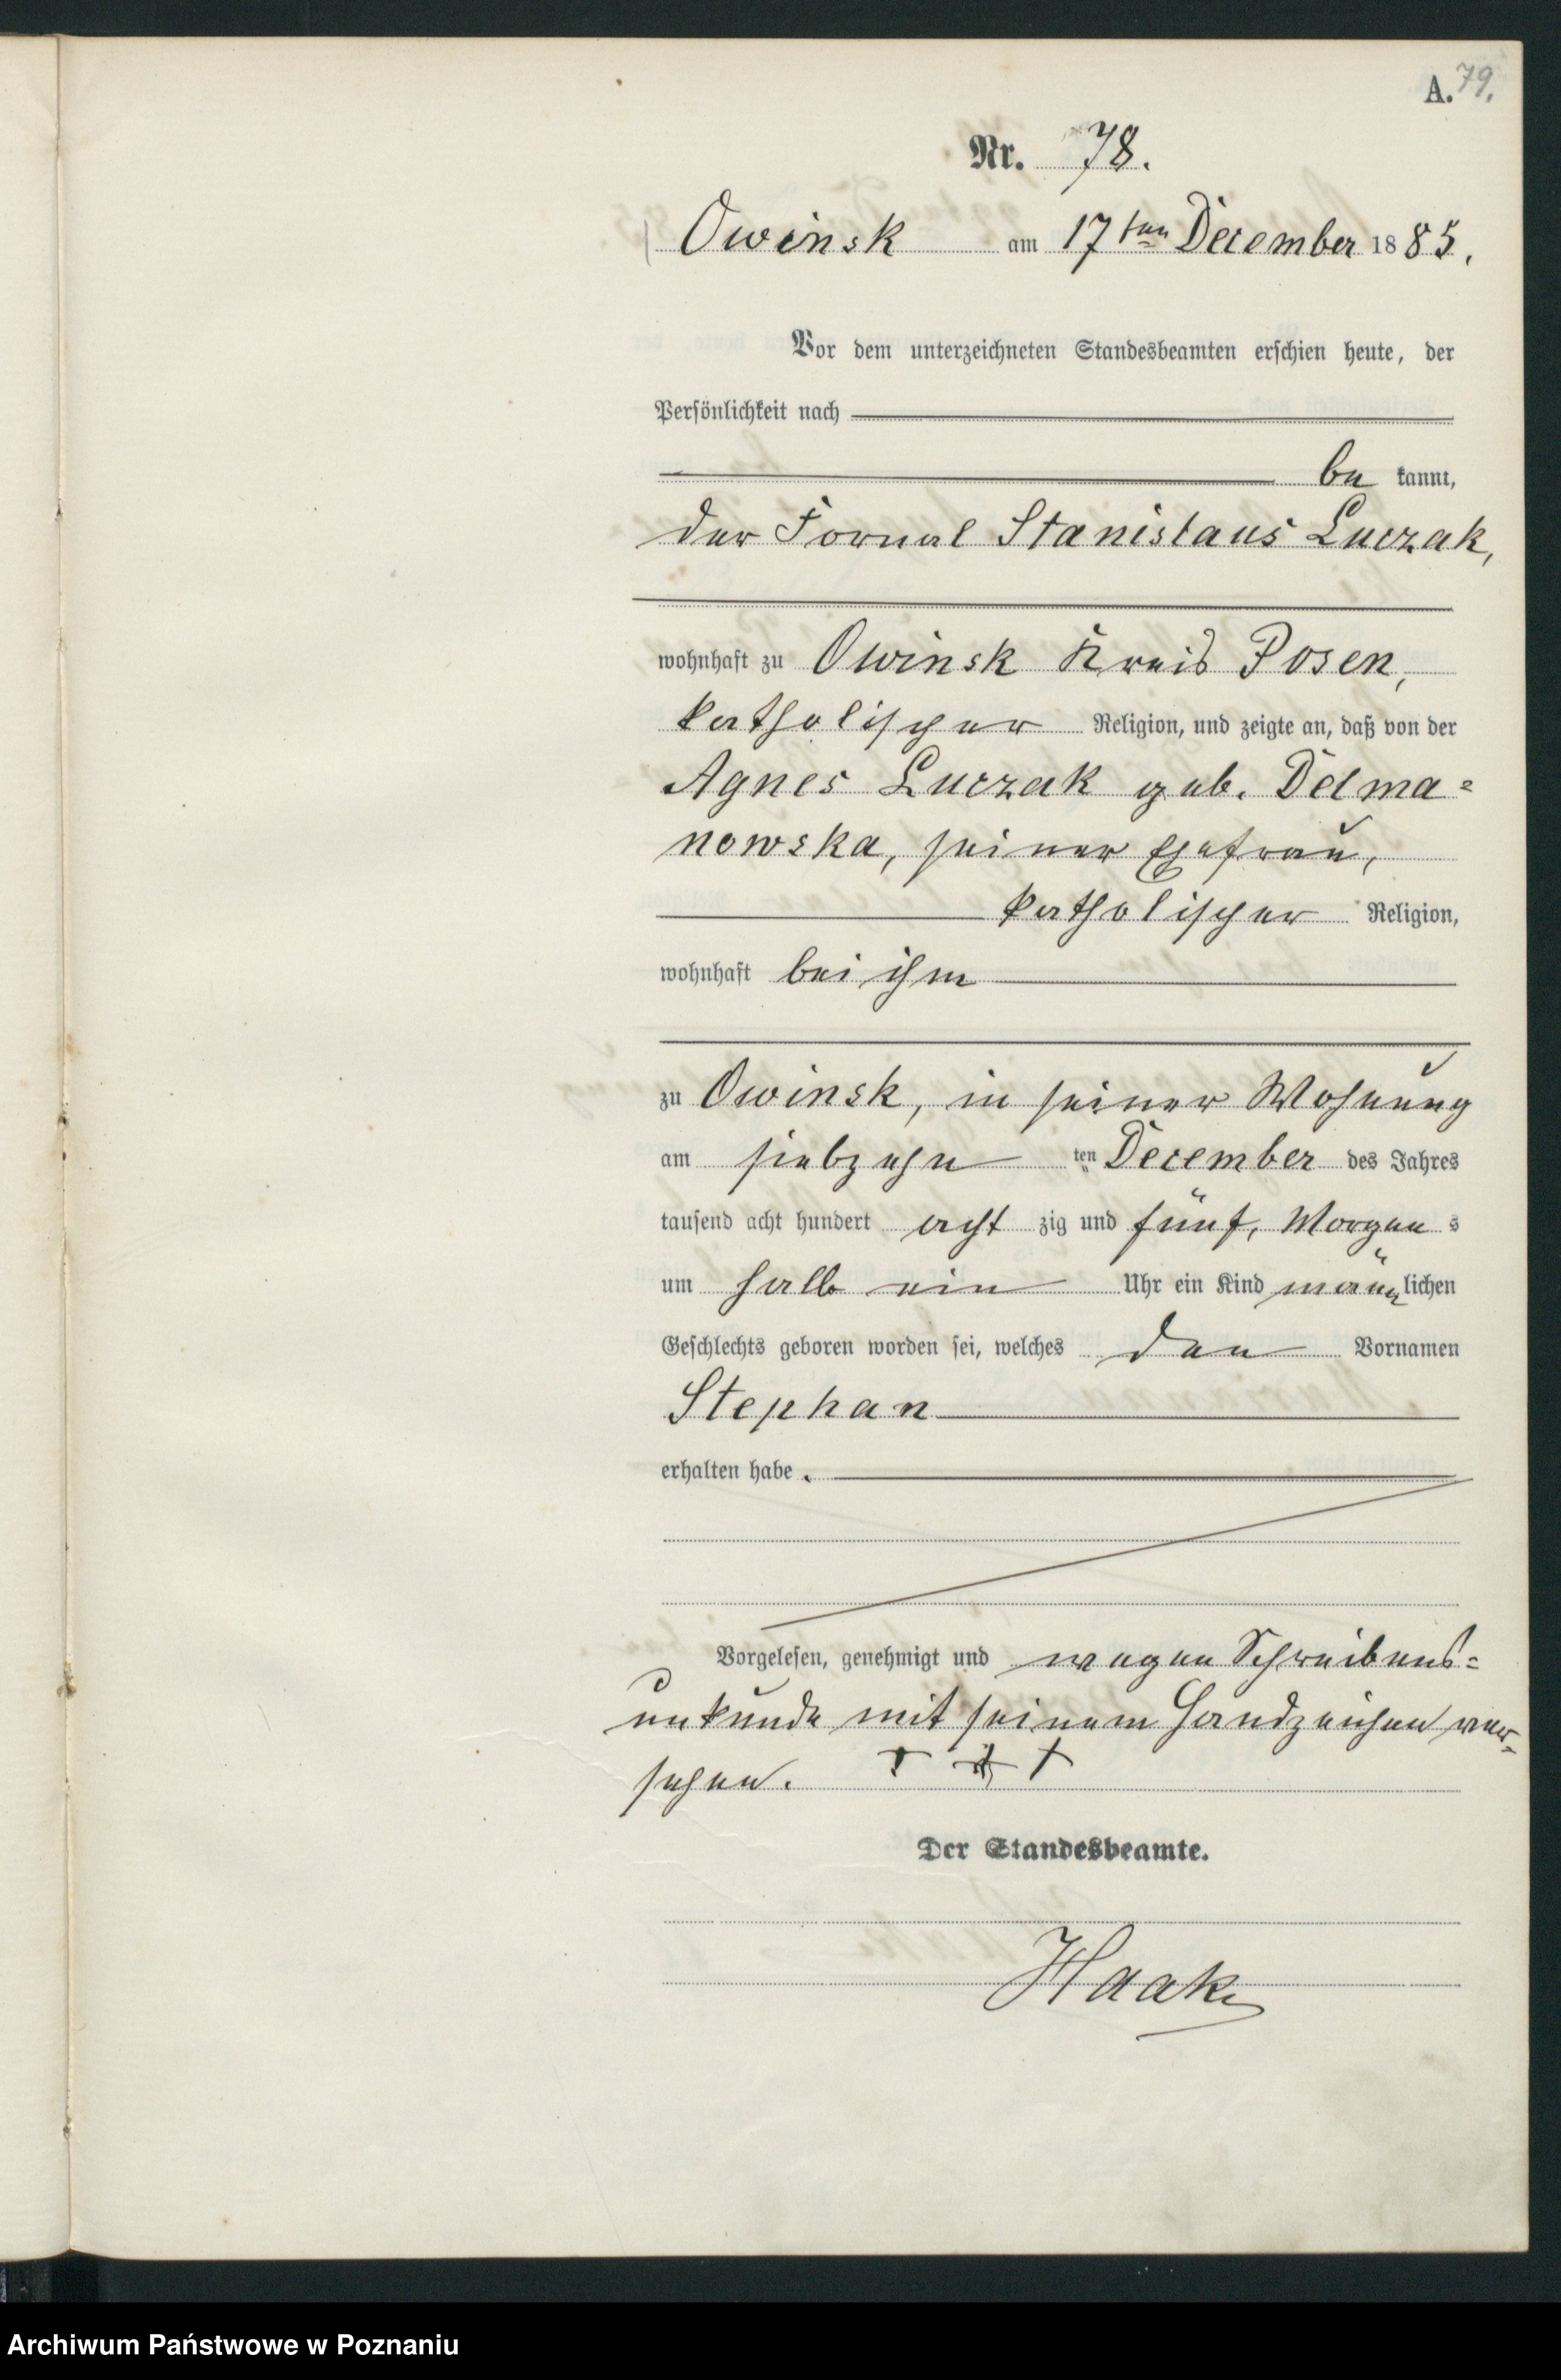 A. 79.
Nr. 78.
Owinsk am 17ten December 1885.
Vor dem unterzeichneten Standesbeamten erschien heute, der
Persönlichkeit nach
be kannt,
der Fornal Stanislaus Luczak,
wohnhaft zu Owinsk Kreis Posen,
katholischer Religion, und zeigte an, daß von der
Agnes Luczak geb. Delma=
nowska, seiner Ehefrau,
katholischer Religion,
wohnhaft bei ihm
zu Owinsk, in seiner Wohnung
am siebzehn ten December des Jahres
tausend acht hundert acht zig und fünf, Morgen s
um halb ein Uhr ein Kind männlichen
Geschlechts geboren worden sei, welches den Vornamen
Stephan
erhalten habe.
Vorgelesen, genehmigt und wegen Schreibens=
unkunde mit seinem Handzeichen ver=
sehen. + + +
Der Standesbeamte.
Haake
Archiwum Państwowe w Poznaniu